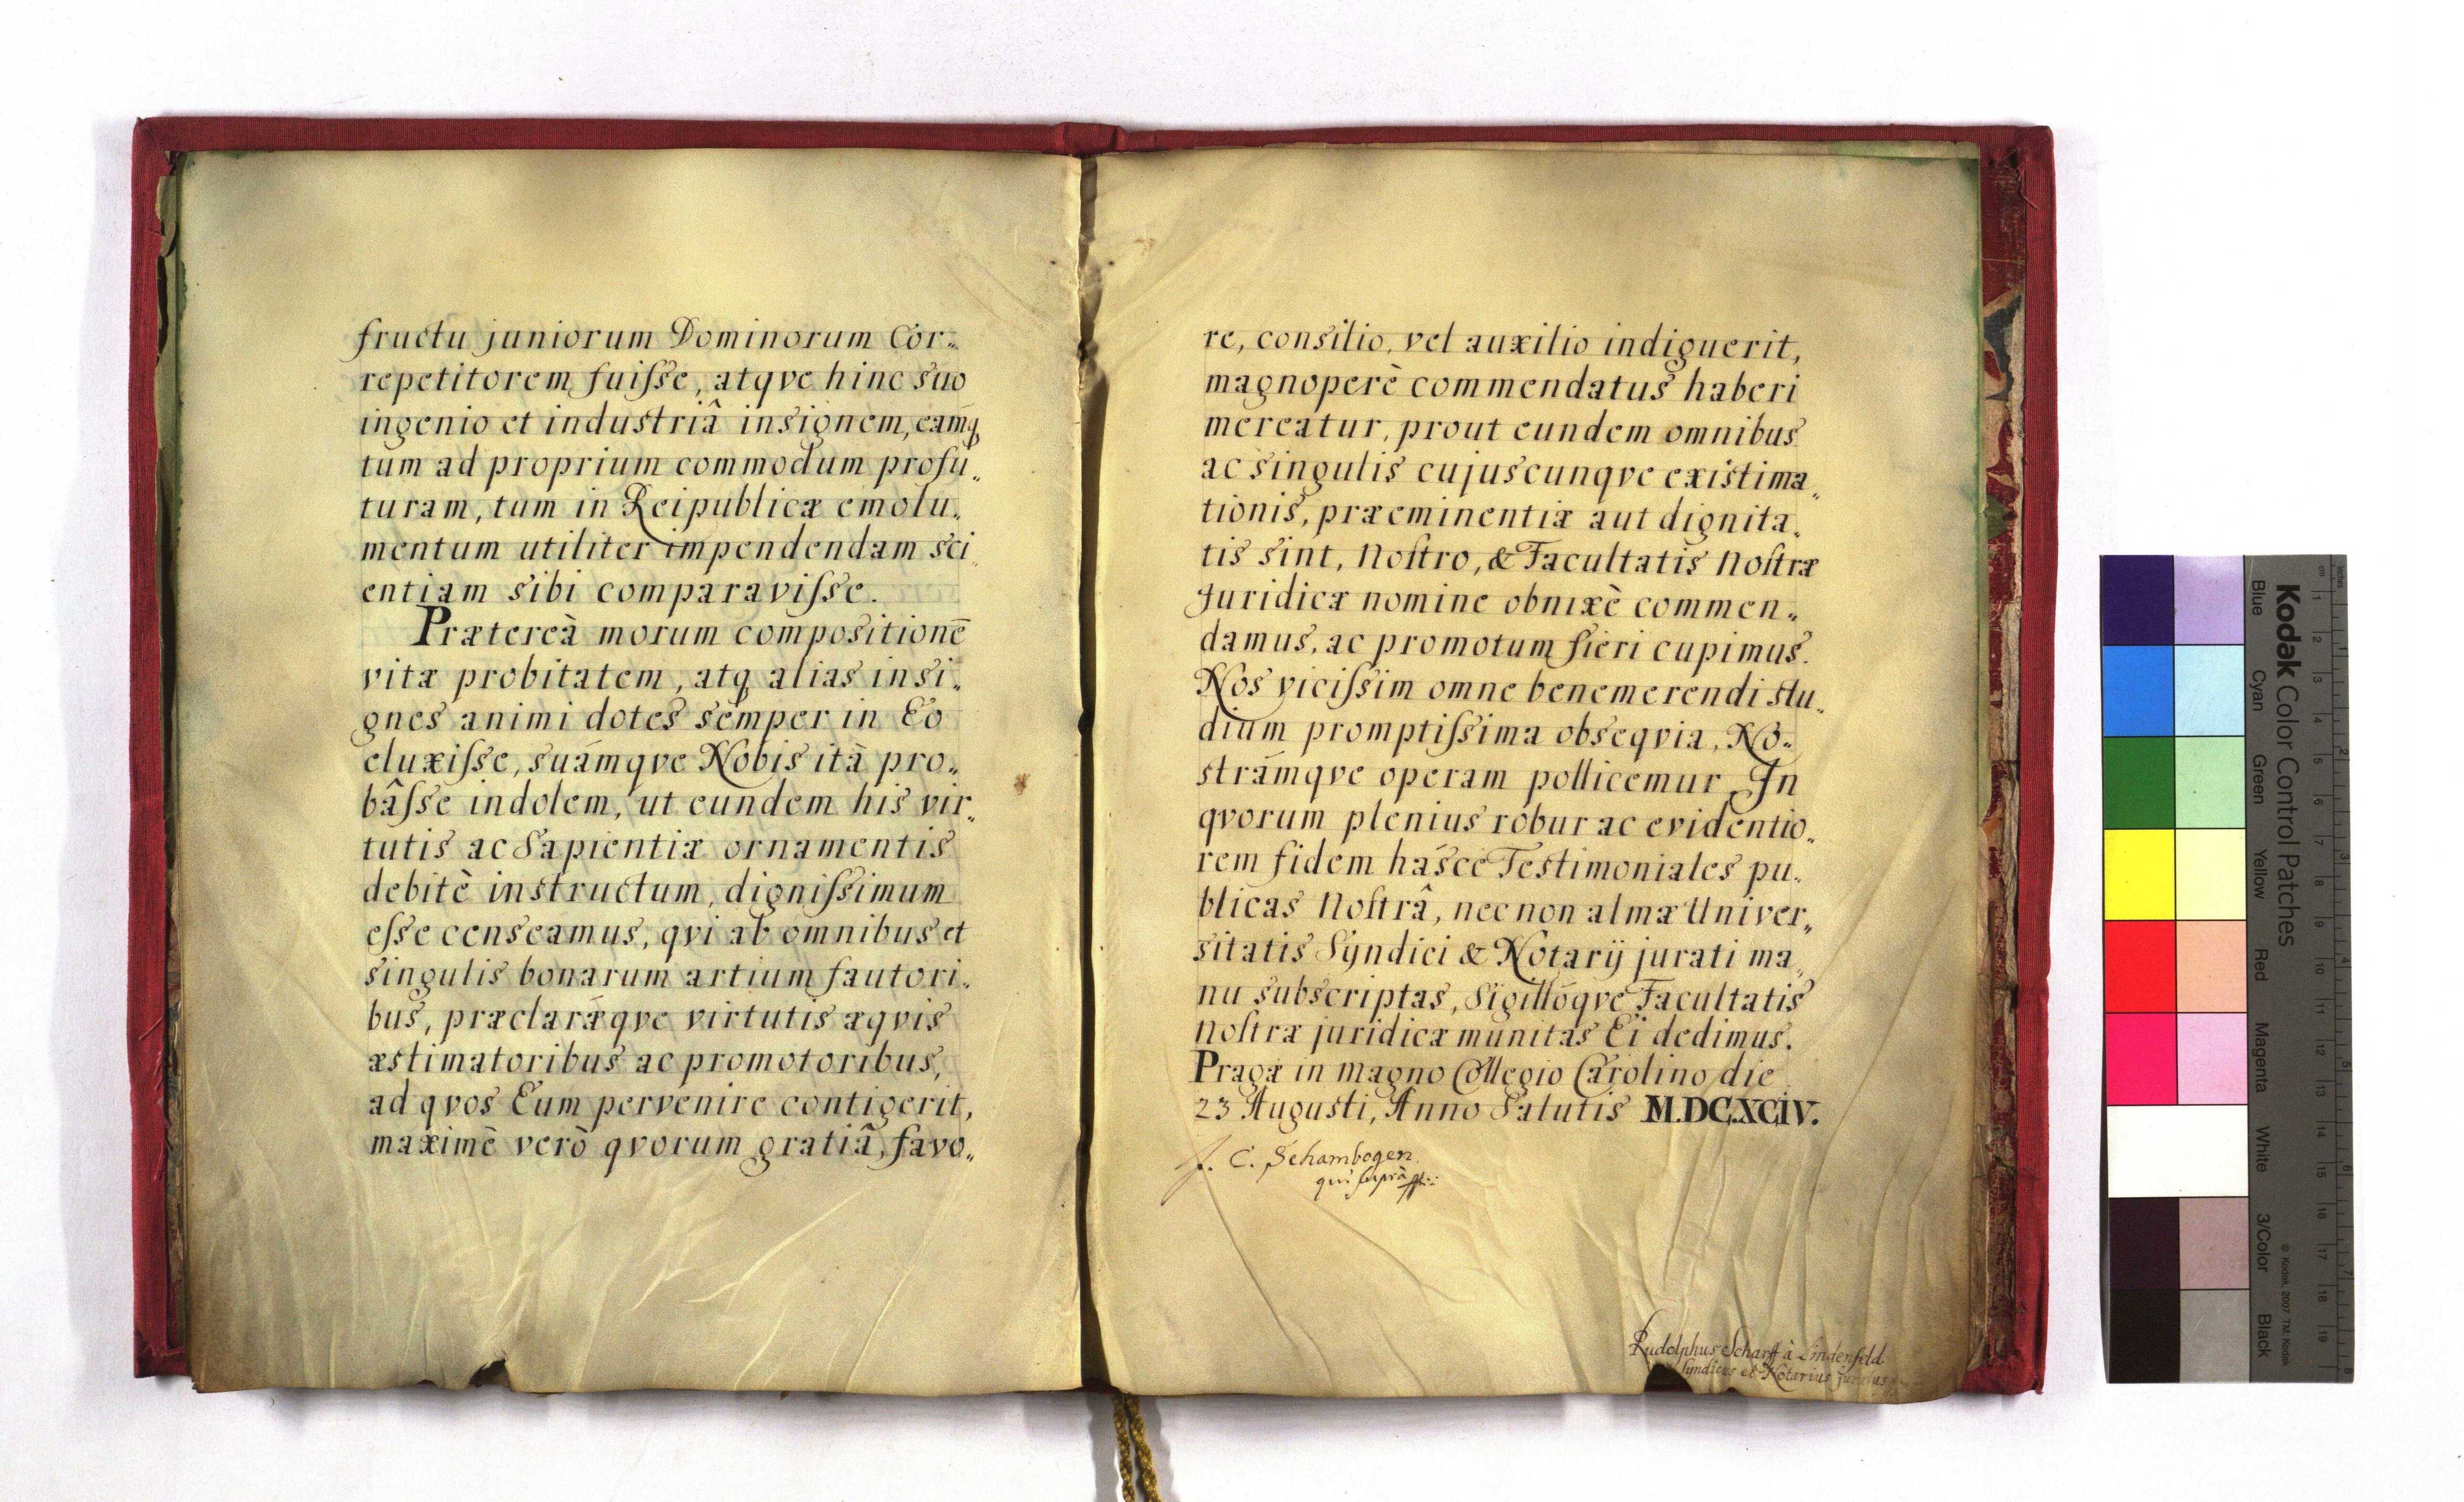 fructu juniorum Dominorum Cor„
repetitorem fuiſse, atqve hinc suo
ingenio et industriâ insignem, eamq̃
tum ad proprium commodum profu„
turam, tum in Reipublicæ emolu„
mentum utiliter impendendam sci„
entiam sibi comparaviſse.
Prætereà morum compositionẽ
vitæ probitatem, atq alias insi„
gnes animi dotes semper in Eo
eluxiſse, suámqve Nobis ità pro„
bâſse indolem, ut eundem his vir„
tutis ac Sapientiæ ornamentis
debitè instructum, digniſsimum
eſse censeamus, qvi ab omnibus et
singulis bonarum artium fautori„
bus, præclarǽqve virtutis æqvis
æstimatoribus ac promotoribus,
ad qvos Eum pervenire contigerit,
maximè verò qvorum gratiâ, favo„
re, consilio, vel auxilio indiguerit,
magnoperè commendatus haberi
mereatur, prout eundem omnibus
ac singulis cujuscunqve existima„
tionis, præeminentiæ aut dignita„
tis sint, Noſtro, & Facultatis Noſtræ
Juridicæ nomine obnixè commen„
damus, ac promotum fieri cupimus.
Nos viciſsim omne benemerendi stu„
dium promptiſsima obseqvia, No„
strámqve operam pollicemur. In
qvorum plenius robur ac evidentio„
rem fidem hasce Testimoniales pu„
blicas Noſtrâ, nec non almæ Univer„
sitatis Syndici & Notarij jurati ma„
nu subscriptas, Sigillóqve Facultatis
Noſtræ juridicæ munitas Ei dedimus.
Pragæ in magno Collegio Carolino die
23 Augusti, Anno Salutis M.DC.XCIV.
J. C. Schambogen
qui suprà
Rudolphus Scharff à Lindenfeld
Syndicus et Notarius juratus
Kodak Color Control Patches
Blue Cyan Green Yellow Red Magenta White 3/Color Black
© Kodak, 2007 TM: Kodak
cm 1 2 3 4 5 6 7 8 9 10 11 12 13 14 15 16 17 18 19